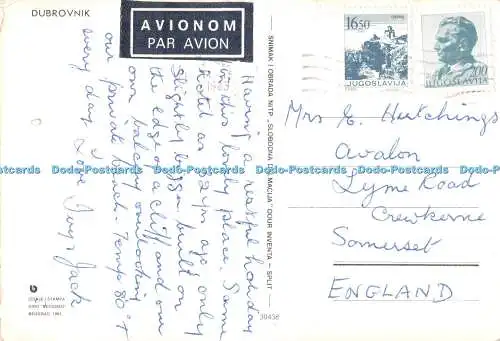 DUBROVNIK
AVIONOM
PAR AVION
Having a restful holiday
in this lovely place. Same
hotel as 2 yrs ago only
slightly bigger built on
the edge of a cliff and our
own balcony overlooking
our private beach. Temp 80°F
every day. Love Joyce Jack
SNIMAK I OBRADA NITP „SLOBODNA DALMACIJA" OOUR INVENTA – SPLIT
30438
16,50
JUGOSLAVIJA
2,00
JUGOSLAVIJA
Mrs E. Hutchings
Avalon
Lyme Road
Crewkerne
Somerset
ENGLAND
Dodo-Postcards Dodo-Postcards Dodo-Postcards Dodo-Postcards